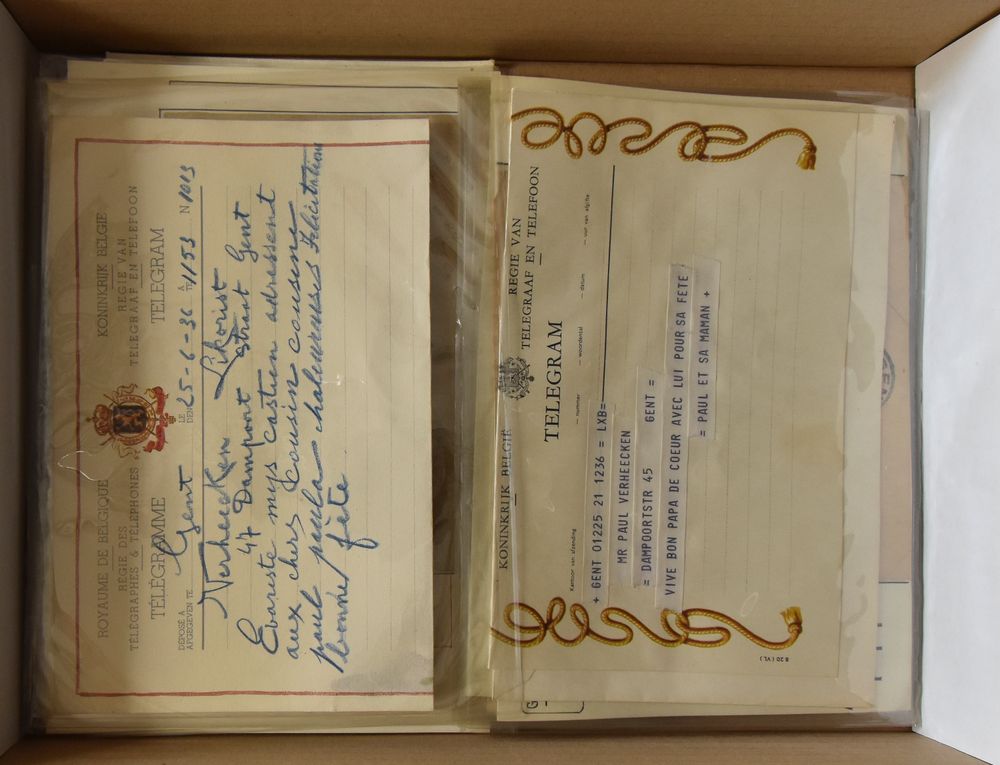 ROYAUME DE BELGIQUE
RÉGIE DES
TÉLÉGRAPHES & TÉLÉPHONES
TÉLÉGRAMME
KONINKRIJK BELGIE
REGIE VAN
TELEGRAAF EN TELEFOON
TELEGRAM
DÉPOSÉ A
AFGEGEVEN TE
Gent
LE
DEN
25-6-36
À
TE
1153
N 1013
Verheecken Likorist
47 Dampoort straat Gent
Evariste mys castien adressent
aux chers cousin cousine
paul paula chaleureuses Félicitations
bonne fête
KONINKRIJK BELGIË
REGIE VAN
TELEGRAAF EN TELEFOON
TELEGRAM
Kantoor van afzending
nummer
woordental
datum
uur van afgifte
+ GENT 01225 21 1236 = LXB=
MR PAUL VERHEECKEN
= DAMPOORTSTR 45 GENT =
VIVE BON PAPA DE COEUR AVEC LUI POUR SA FETE
= PAUL ET SA MAMAN +
B 20 (VL)